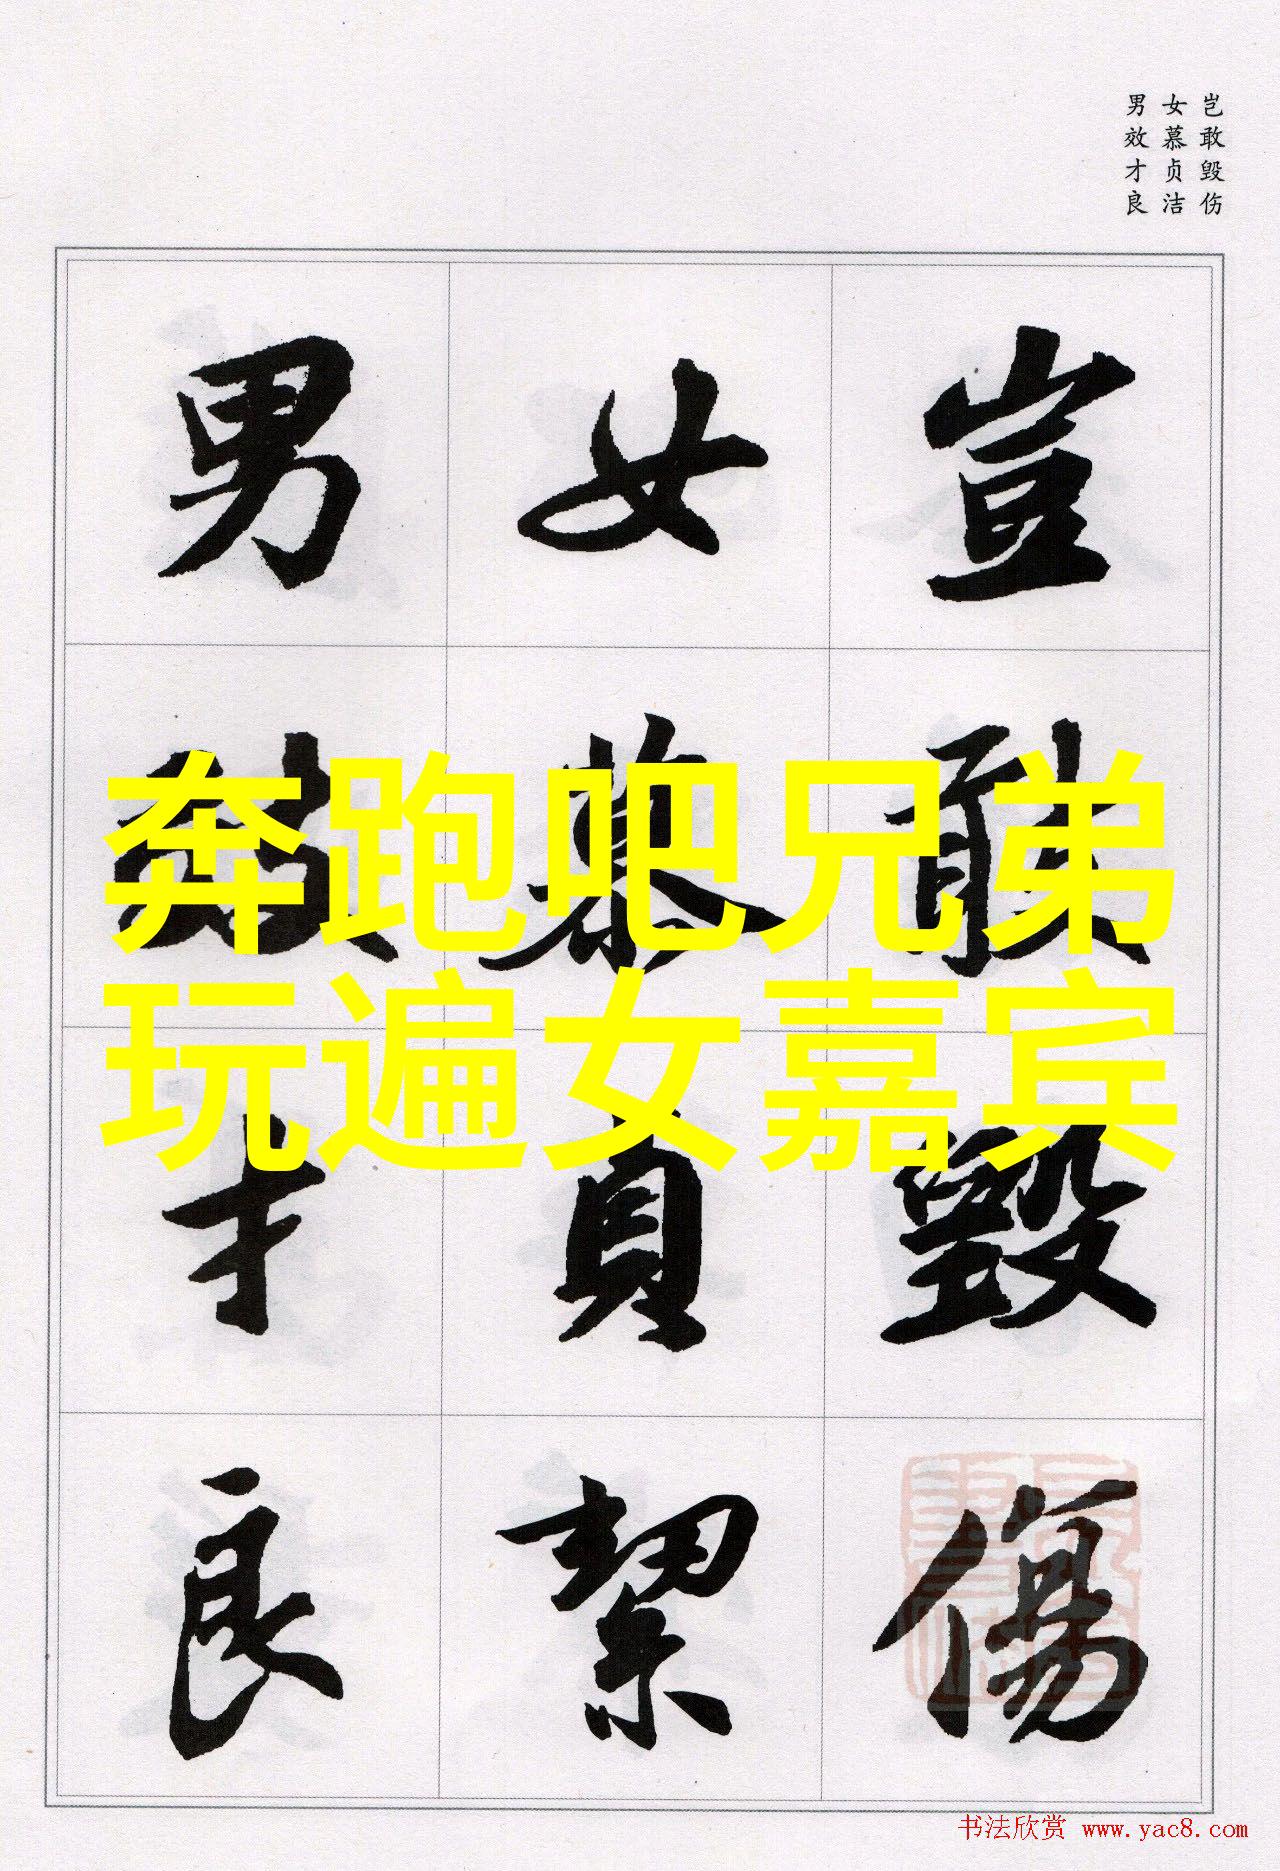 岂敢毁伤
女慕贞洁
男效才良
豈敢毀傷
女慕貞絜
男效才良
奔跑吧兄弟
玩遍女嘉宾
书法欣赏 www.yac8.com